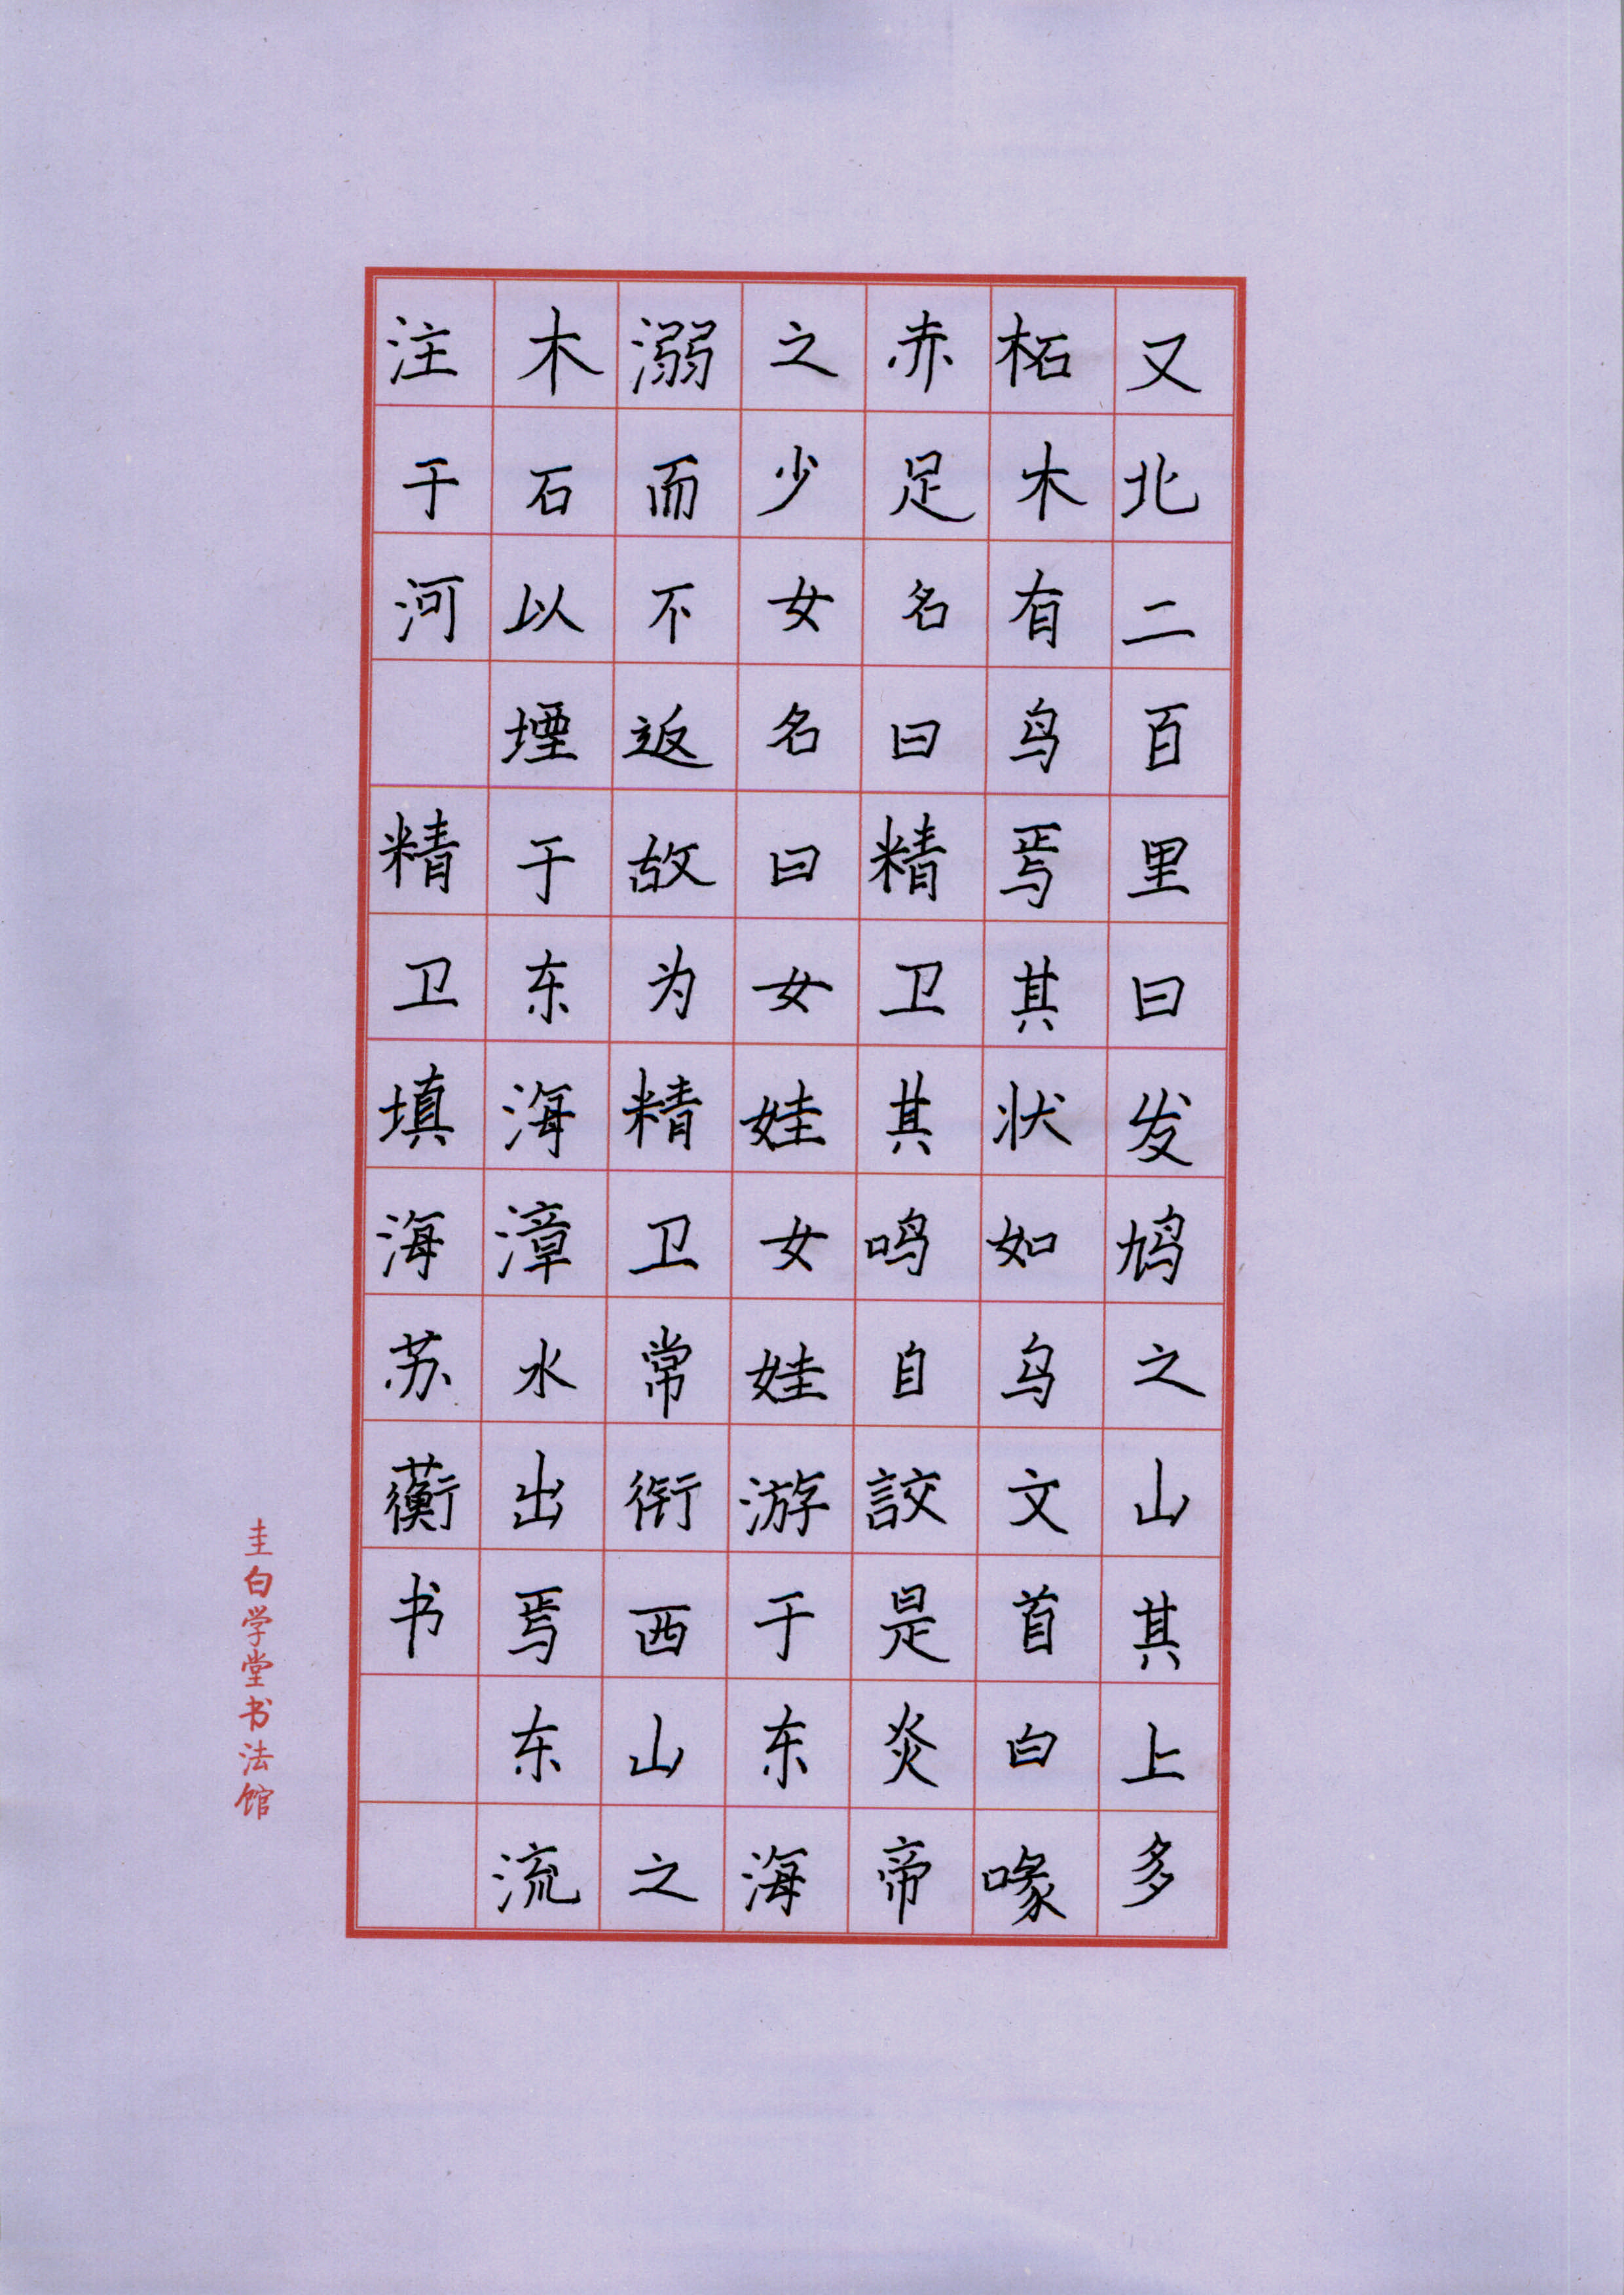 又北二百里曰发鸠之山其上多
柘木有鸟焉其状如乌文首白喙
赤足名曰精卫其鸣自詨是炎帝
之少女名曰女娃女娃游于东海
溺而不返故为精卫常衔西山之
木石以堙于东海漳水出焉东流
注于河 精卫填海苏蘅书
圭白学堂书法馆